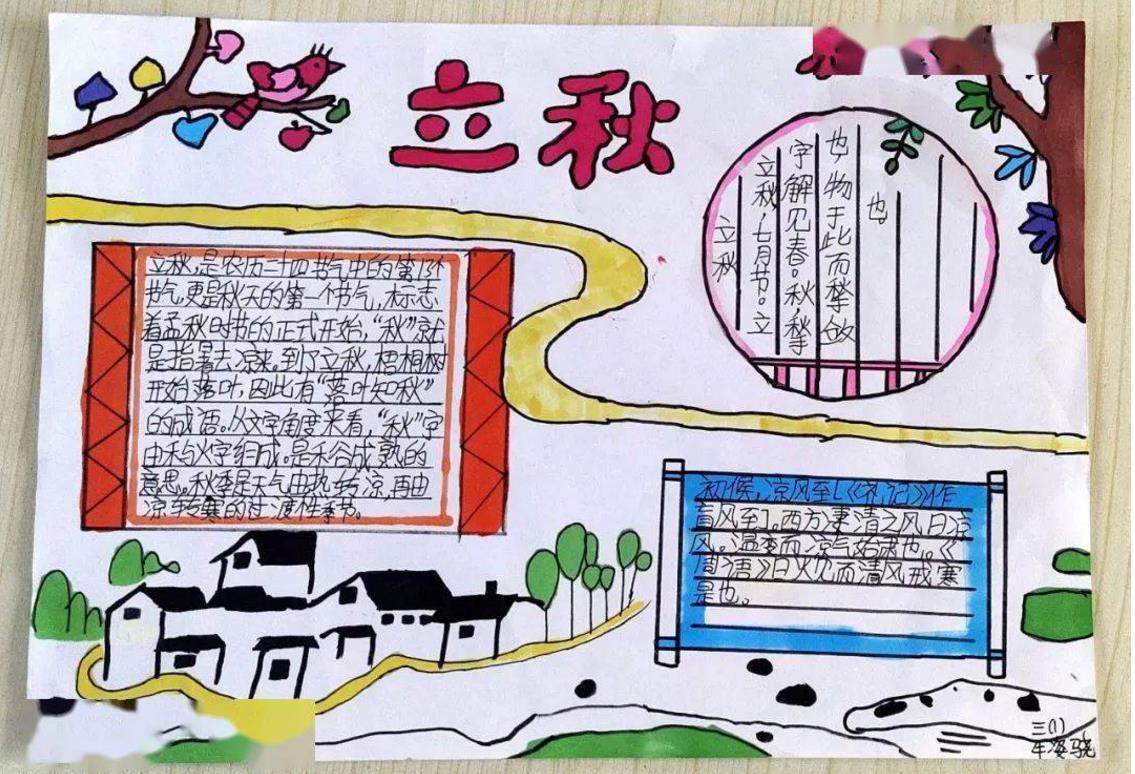 立秋
立秋,是农历二十四节气中的第13个
节气,更是秋天的第一个节气,标志
着孟秋时节的正式开始,“秋”就
是指暑去凉来。到了立秋,梧桐树
开始落叶,因此有“落叶知秋”
的成语。从文字角度来看,“秋”字
由禾与火字组成。是禾谷成熟的
意思。秋季是天气由热转凉,再由
凉转寒的过渡性季节。
立秋
立秋,七月节。立
字解见春。秋,揫
也,物于此而揫敛
也
初候,凉风至[《礼记》作
盲风至]。西方凄清之风曰凉
风。温变而凉气始肃也。《
周语》曰火见而清风戒寒
是也。
三(1)